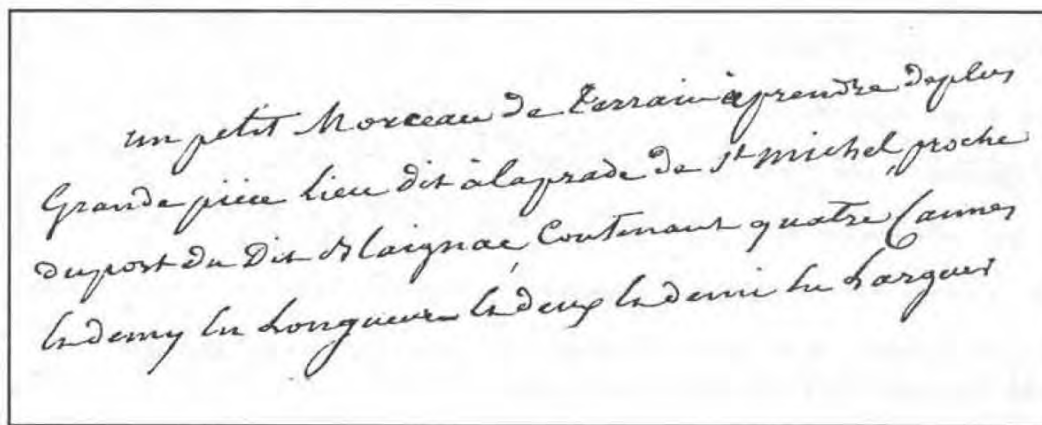 un petit Morceau de terrain àprendre deplus
Grande pièce lieu dit àlaprade de St michel, proche
duport du Dit Blaignac, Contenant quatre Cannes
Et demy En Longueur Et deux Et demi En Largeur